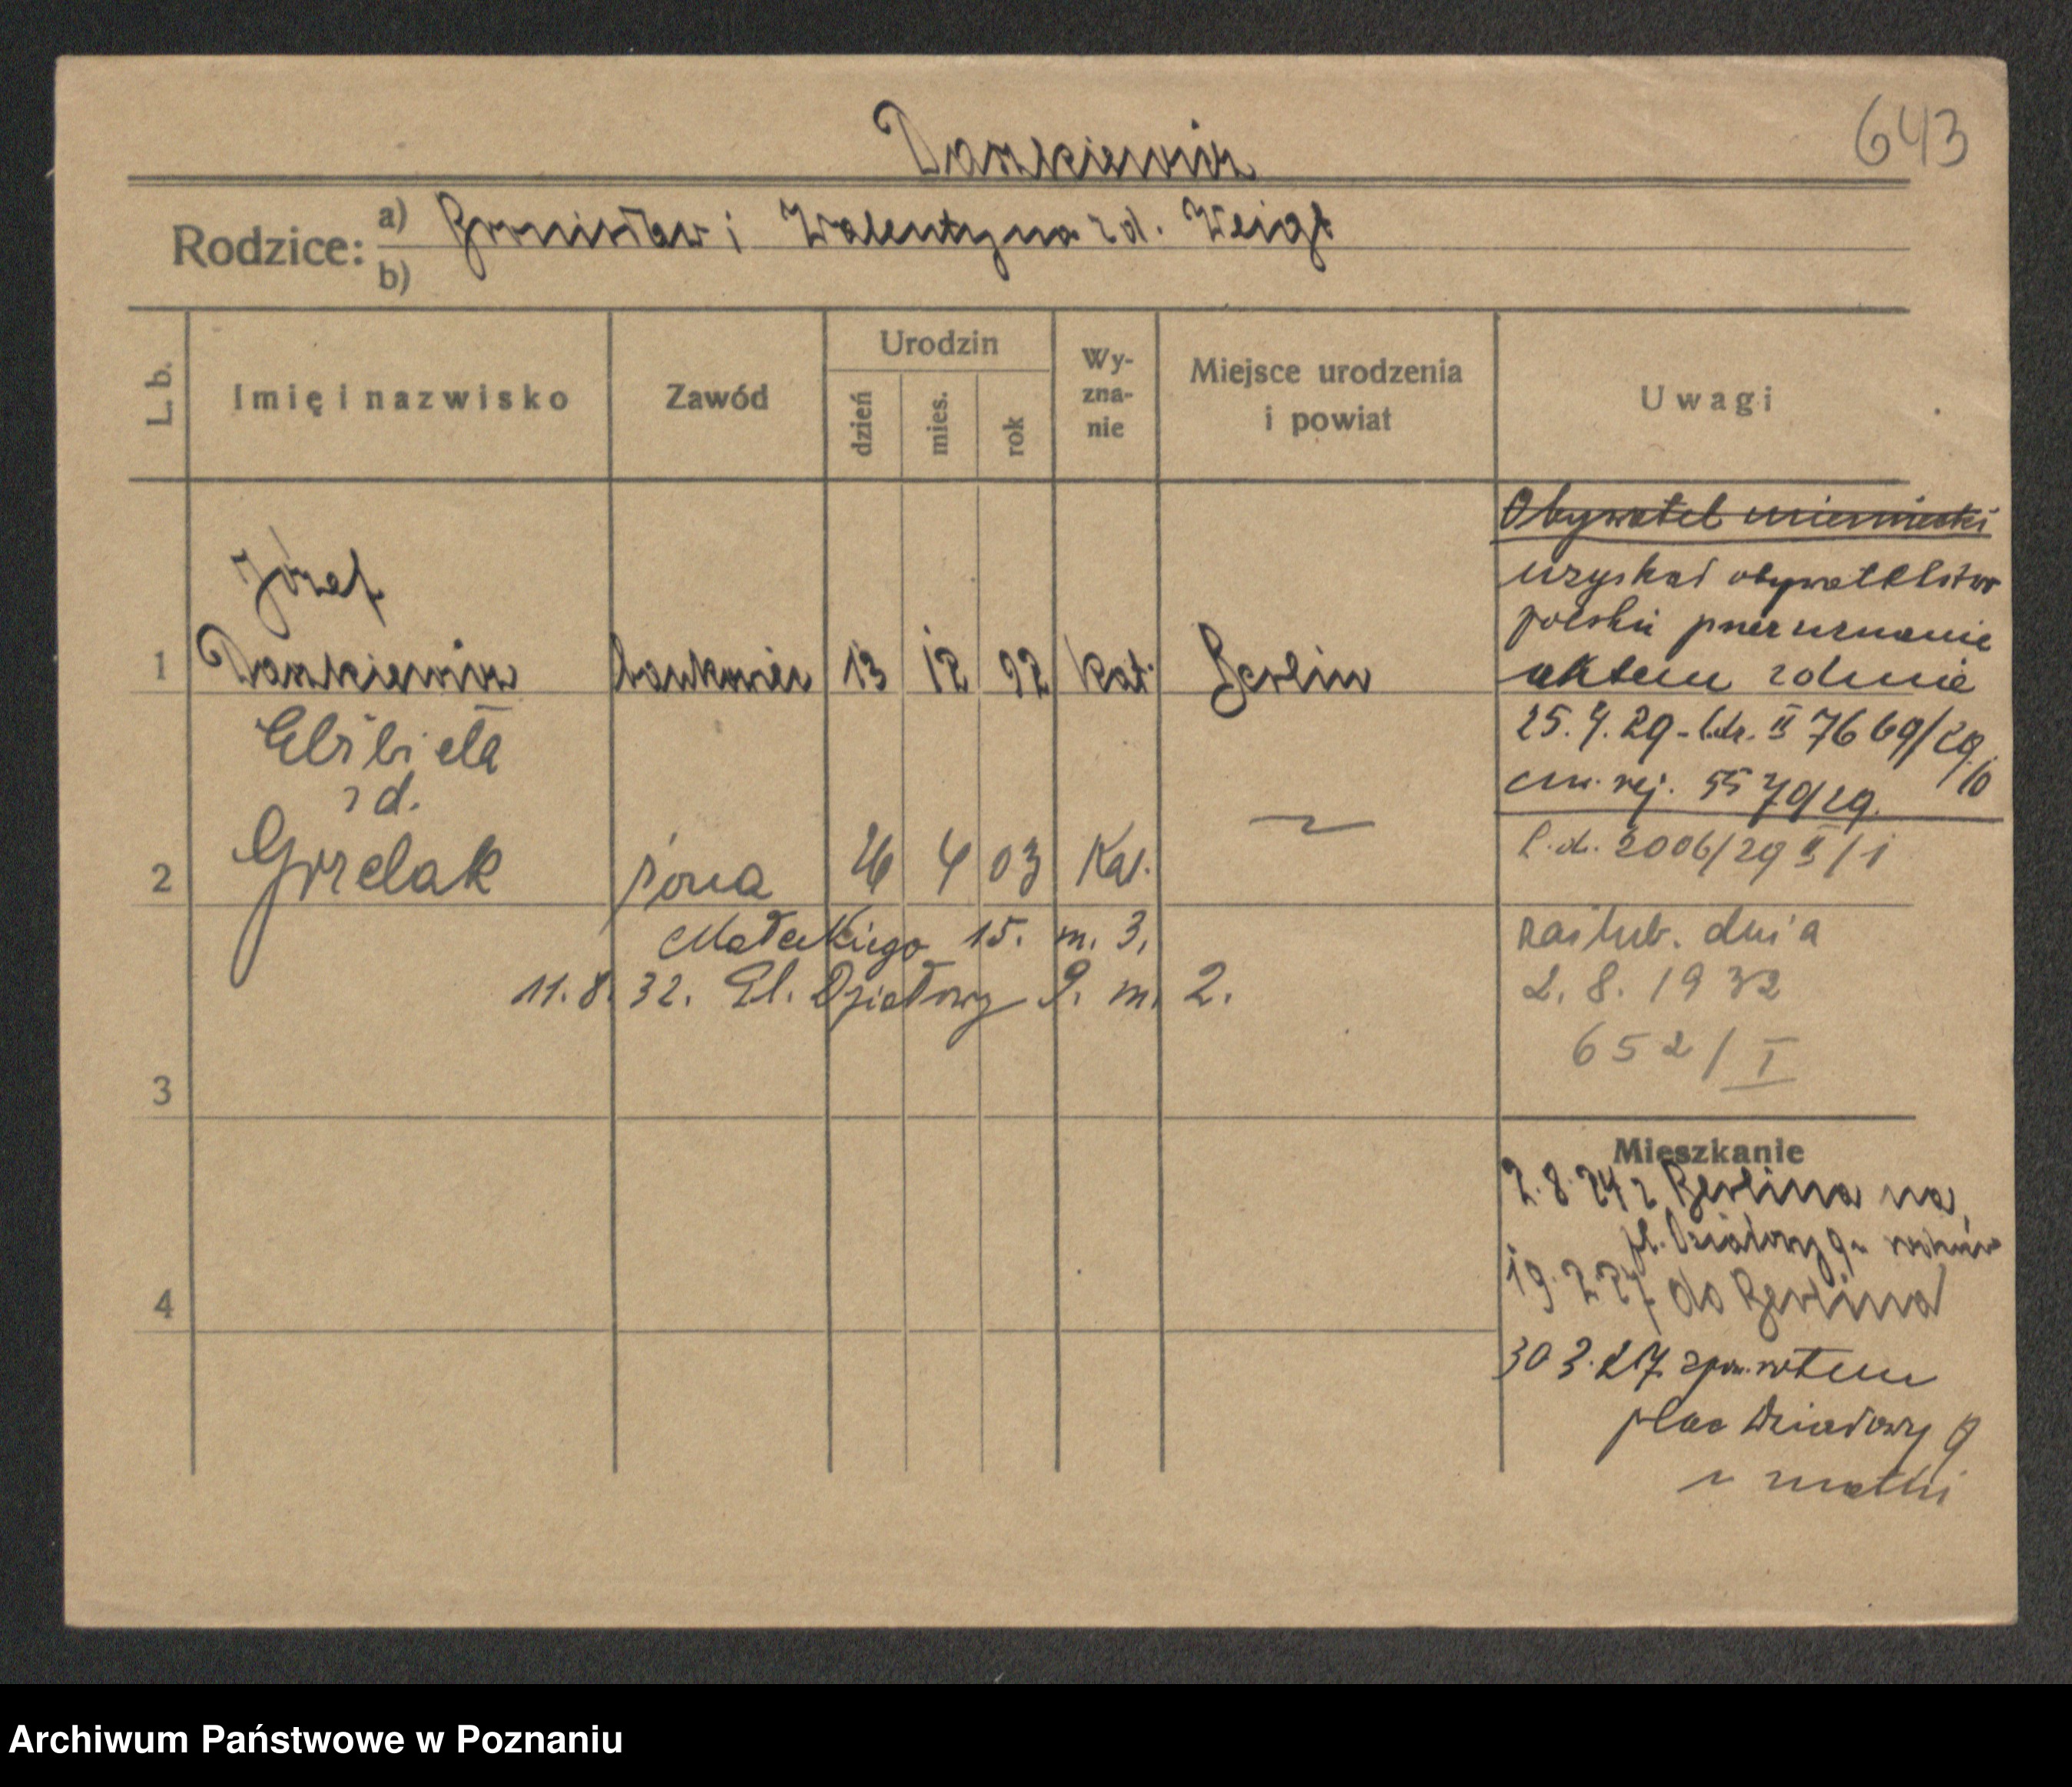 643
Daszkiewicz
Rodzice: a) Bronisław i Walentyna zd. Weigt
b)
L. b.
Imię i nazwisko
Zawód
Urodzin
dzień
mies.
rok
Wy-
zna-
nie
Miejsce urodzenia
i powiat
Uwagi
Obywatel niemiecki
uzyskał obywatelstwo
polskie przez uznanie
aktem z dnia
25. 4. 29 - l.dz. II 7669/29
rej. 5579/29.
l. d. 2006/29 II/1
1
Józef
Daszkiewicz
bankowiec
13
12
92
kat.
Berlin
2
Elżbieta
zd.
Grzelak
żona
26
4
03
Kat.
Małeckiego 15. m. 3.
11. 8. 32. Pl. Działowy 9. m. 2.
zaślub. dnia
2. 8. 1932
652/I
3
Mieszkanie
2. 8. 24 z Berlina na
pl. Działowy 9 u rodziców
19. 2. 27 do Berlina
30 3. 27 z powrotem
plac Działowy 9
u matki
4
Archiwum Państwowe w Poznaniu